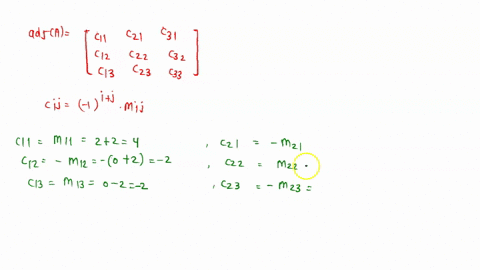 adj(A)= [ C11 C21 C31
C12 C22 C32
C13 C23 C33 ]
Cij = (-1)^i+j . Mij
C11 = M11 = 2+2 = 4 , C21 = -M21
C12 = - M12 = -(0+2) = -2 , C22 = M22 -
C13 = M13 = 0-2 = -2 , C23 = - M23 =